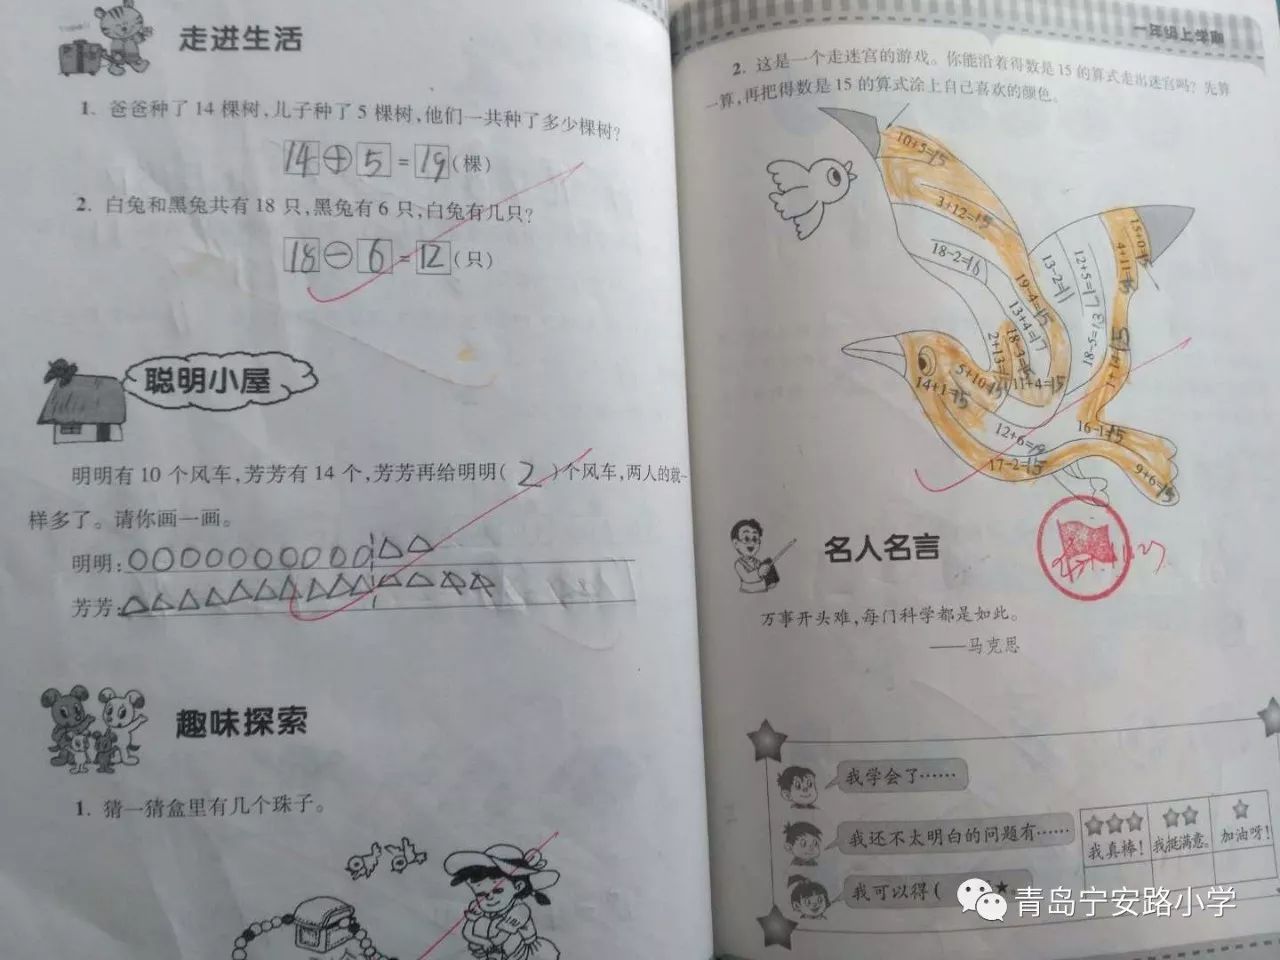 走进生活
1. 爸爸种了 14 棵树,儿子种了 5 棵树,他们一共种了多少棵树?
14 + 5 = 19 (棵)
2. 白兔和黑兔共有 18 只,黑兔有 6 只,白兔有几只?
18 - 6 = 12 (只)
聪明小屋
明明有 10 个风车,芳芳有 14 个,芳芳再给明明( 2 )个风车,两人的就一
样多了。请你画一画。
明明:
芳芳:
趣味探索
1. 猜一猜盒里有几个珠子。
一年级上学期
2. 这是一个走迷宫的游戏。你能沿着得数是 15 的算式走出迷宫吗? 先算
一算,再把得数是 15 的算式涂上自己喜欢的颜色。
10+5=15
3+12=15
18-2=16
19-4=15
13+4=17
13-2=11
12+5=17
18-5=13
15+0=15
4+11=15
1+14=15
2+13=15
18-3=15
11+4=15
5+10=15
14+1=15
12+6=18
17-2=15
16-1=15
9+6=15
名人名言
万事开头难,每门科学都是如此。
——马克思
我学会了……
我还不太明白的问题有……
我可以得(
我真棒!
我挺满意。
加油呀!
青岛宁安路小学